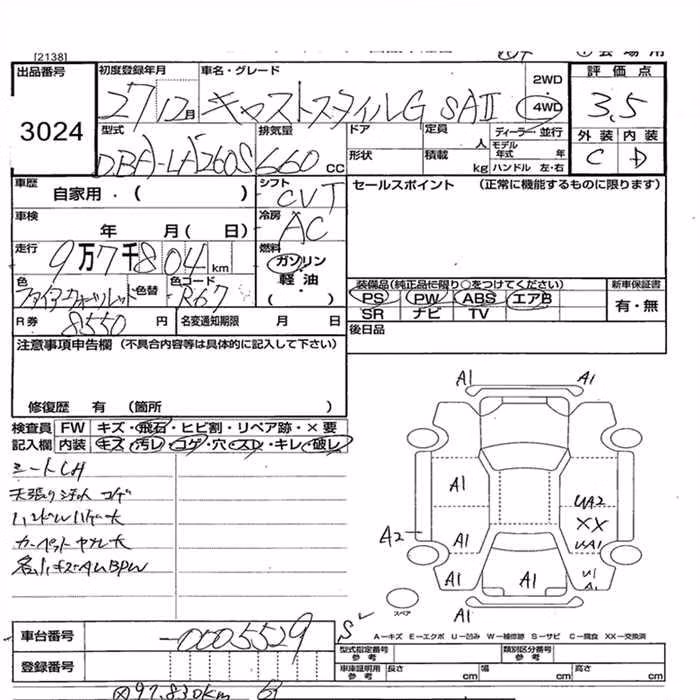 [2138]
出品番号 初度登録年月 車名・グレード 2WD 評価点
3024 27 12月 キャストスタイルG SAII 4WD 3,5
型式 排気量 ドア 定員 人 ディーラー・並行 外装 内装
DBA-LA260S 660 cc 形状 積載 kg モデル年式 年 ハンドル 左・右 C D
車歴 自家用・( ) シフト CVT セールスポイント (正常に機能するものに限ります)
車検 年 月( 日) 冷房 AC
走行 9万7千804km 燃料 ガソリン
軽油
( )
色 色替 色コード R67
装備品(純正品に限り○をつけてください) 新車保証書
PS PW ABS エアB 有・無
SR ナビ TV
R券 8550 円 名変通知期限 月 日 後日品
注意事項申告欄 (不具合内容等は具体的に記入して下さい)
修復歴 有 (箇所 )
検査員 FW キズ・飛石・ヒビ割・リペア跡・×要
記入欄 内装 キズ・汚レ・コゲ・穴・スレ・キレ・破レ
A1 A1
シート
天張り コゲ
ハンドル
カーペット
A1 UA2
XX
A2 A1 UA1
A1 A1 U1
A1
スペア A1
A−キズ E−エクボ U−凹み W−補修跡 S−サビ C−腐食 XX−交換済
車台番号 -0005529
型式指定番号 参考 類別区分番号 参考
登録番号 車庫証明用 参考 長さ cm 幅 cm 高さ cm
97,830km